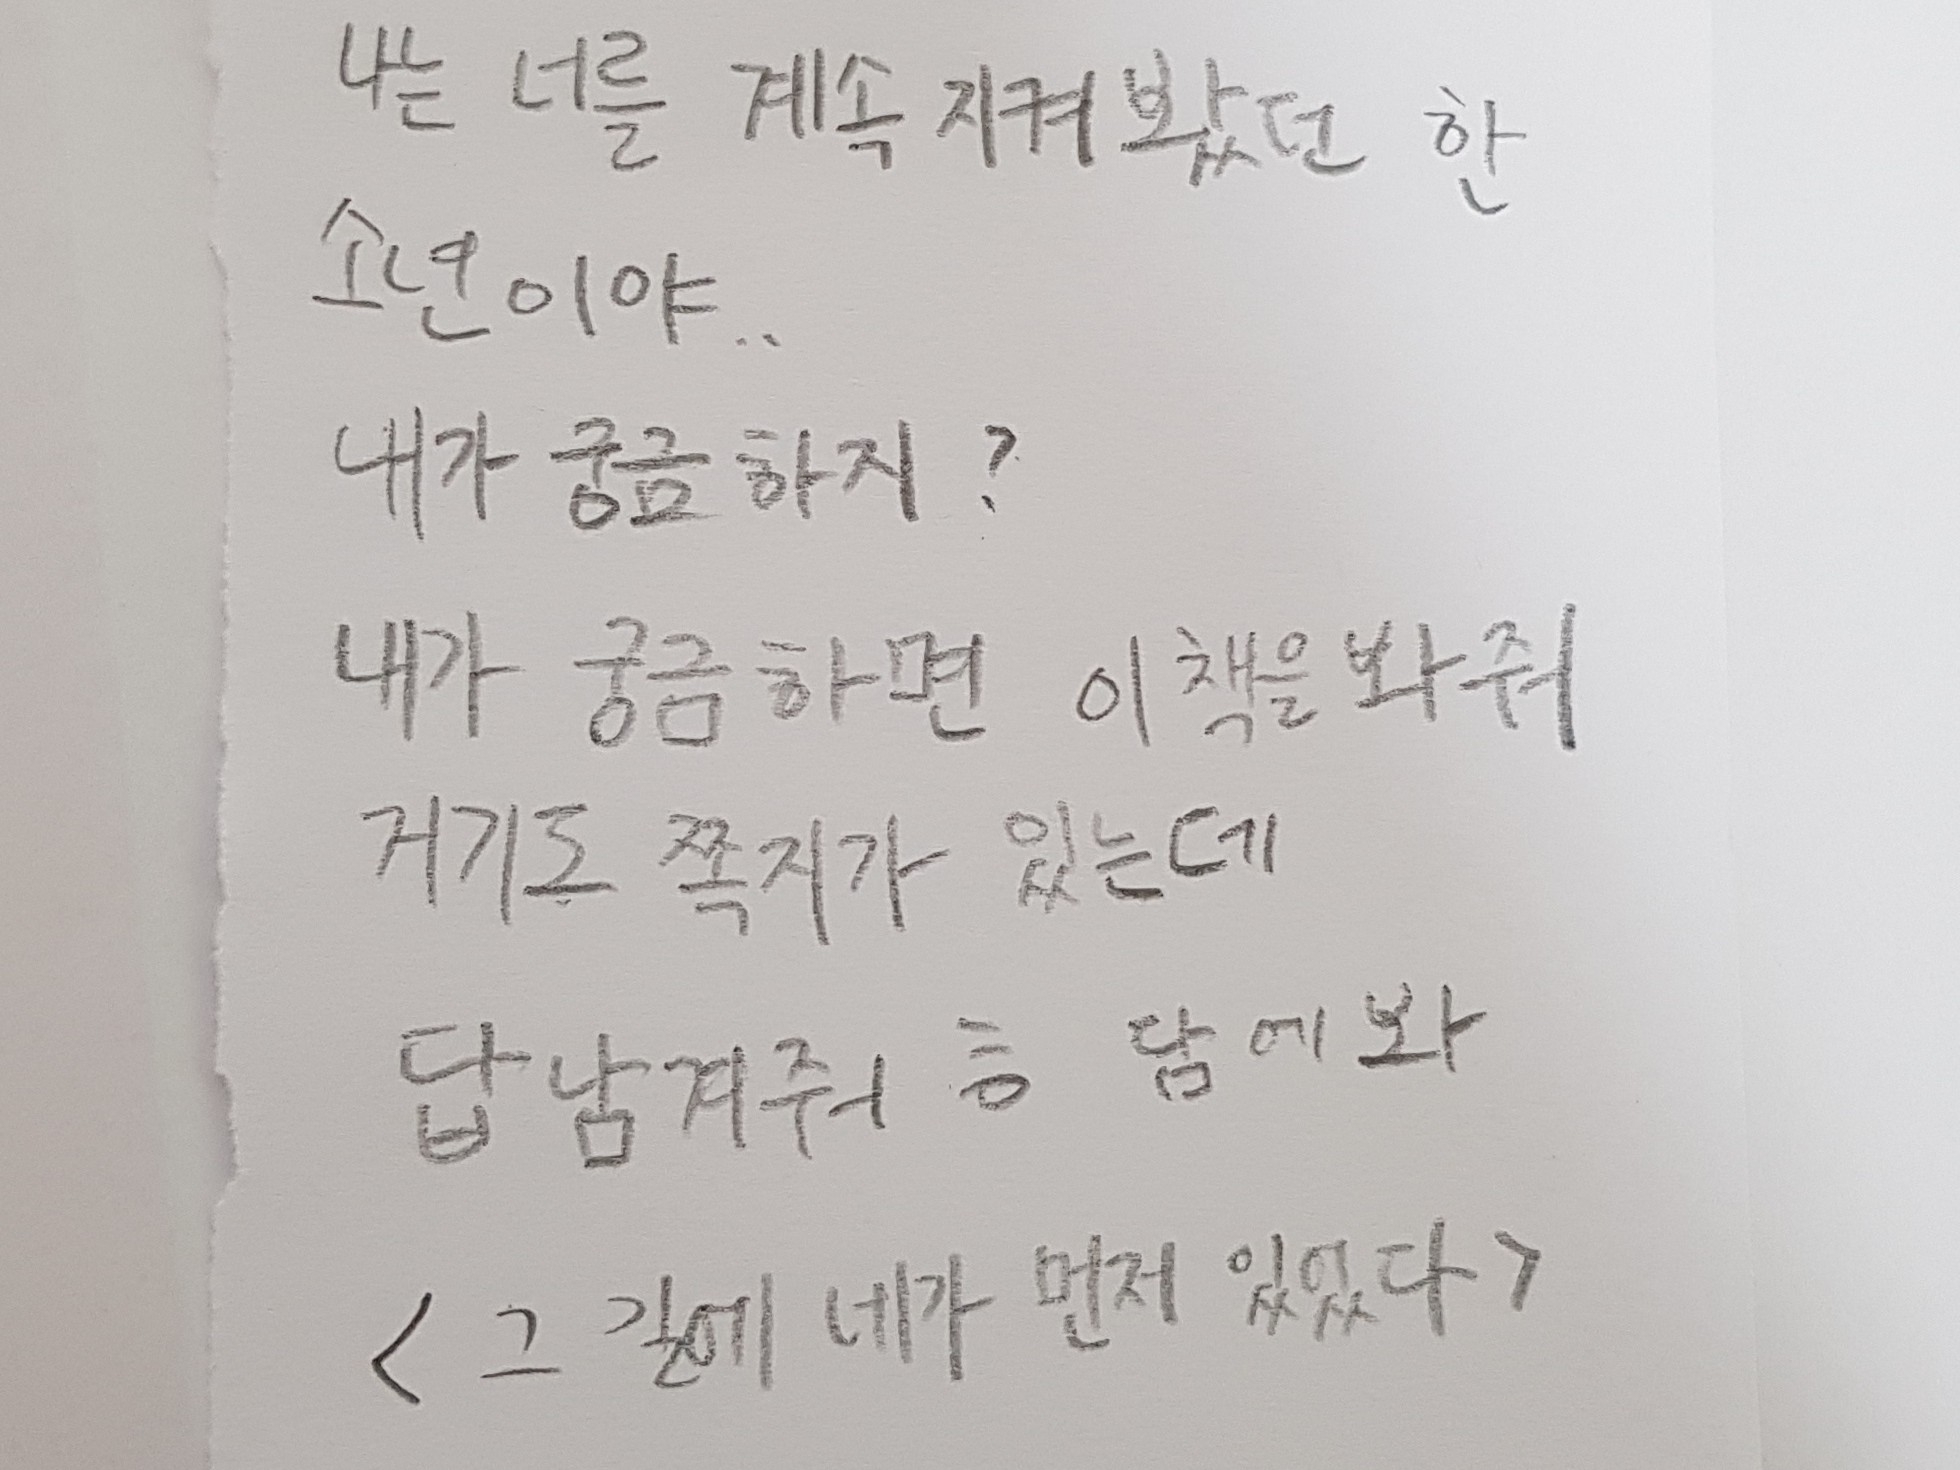 나는 너를 계속 지켜봤던 한
소년이야..
내가 궁금하지?
내가 궁금하면 이 책을 봐줘
거기도 쪽지가 있는데
답 남겨줘 ㅎ 담에봐
< 그 길에 네가 먼저 있었다 >